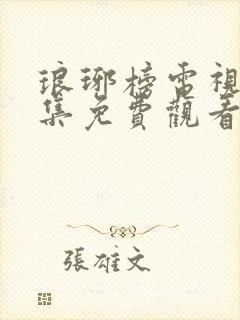 琅琊榜電視
集免費觀看
張雄文